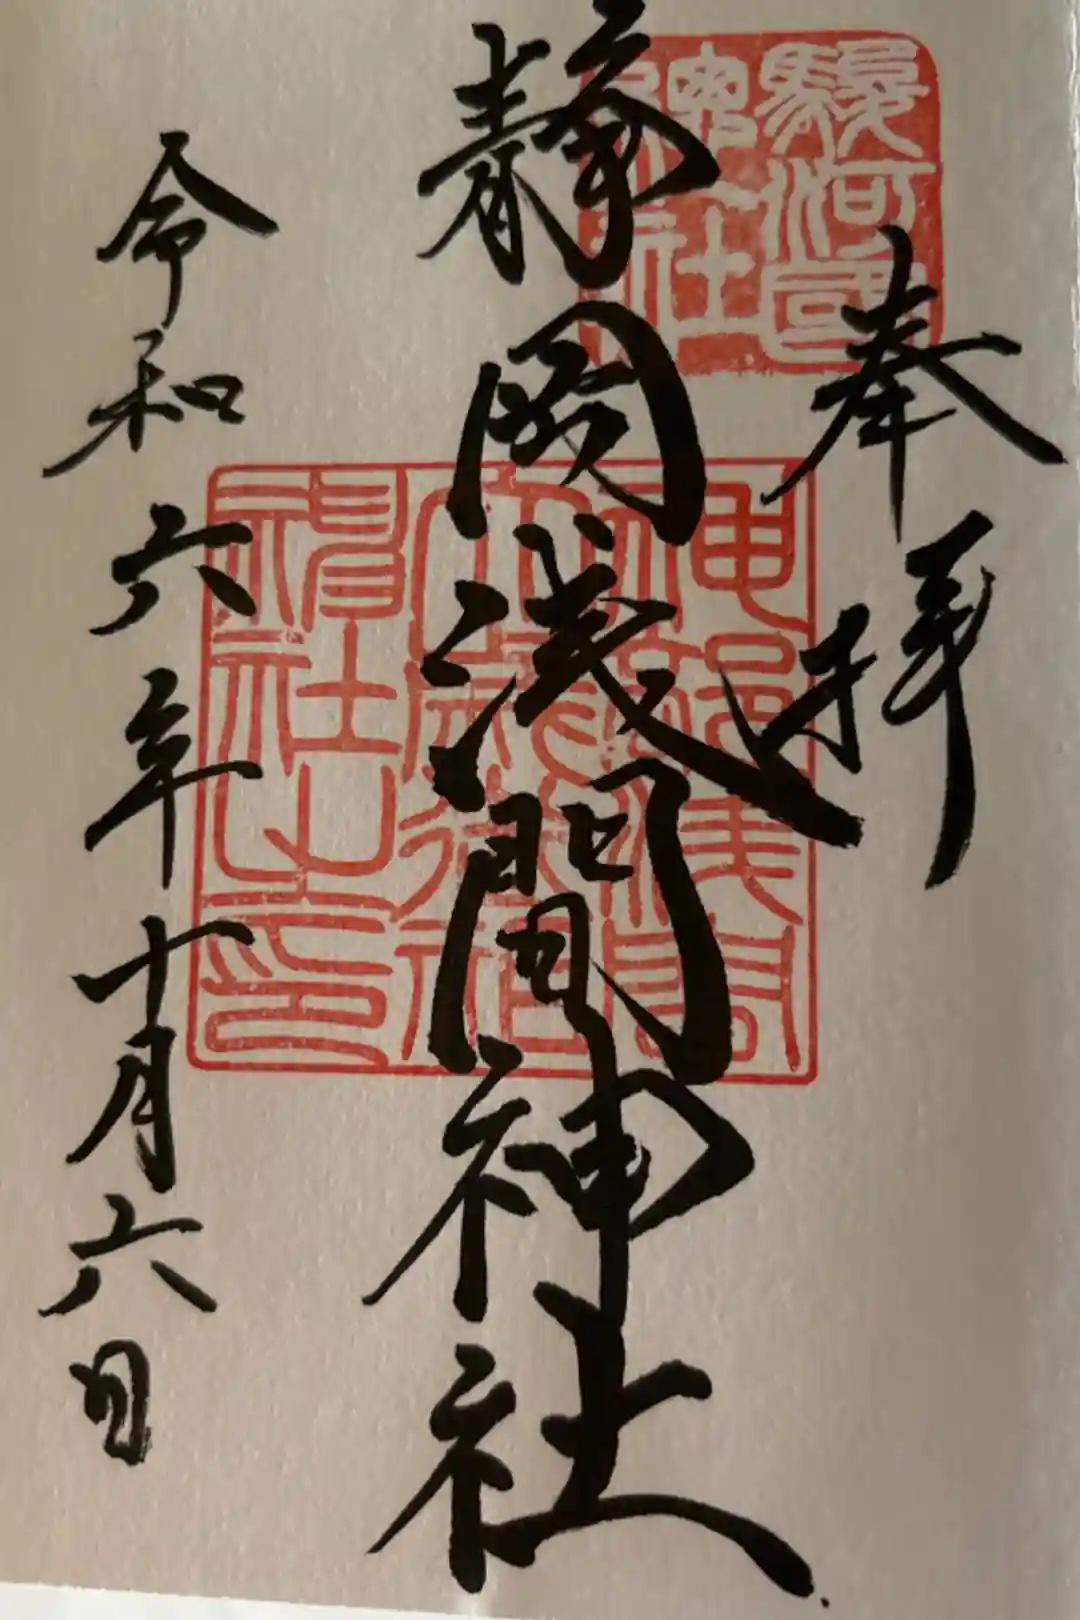 奉拝
駿河國
總社
静岡浅間神社
神部浅間
大歳御祖
神社之印
令和六年十月六日